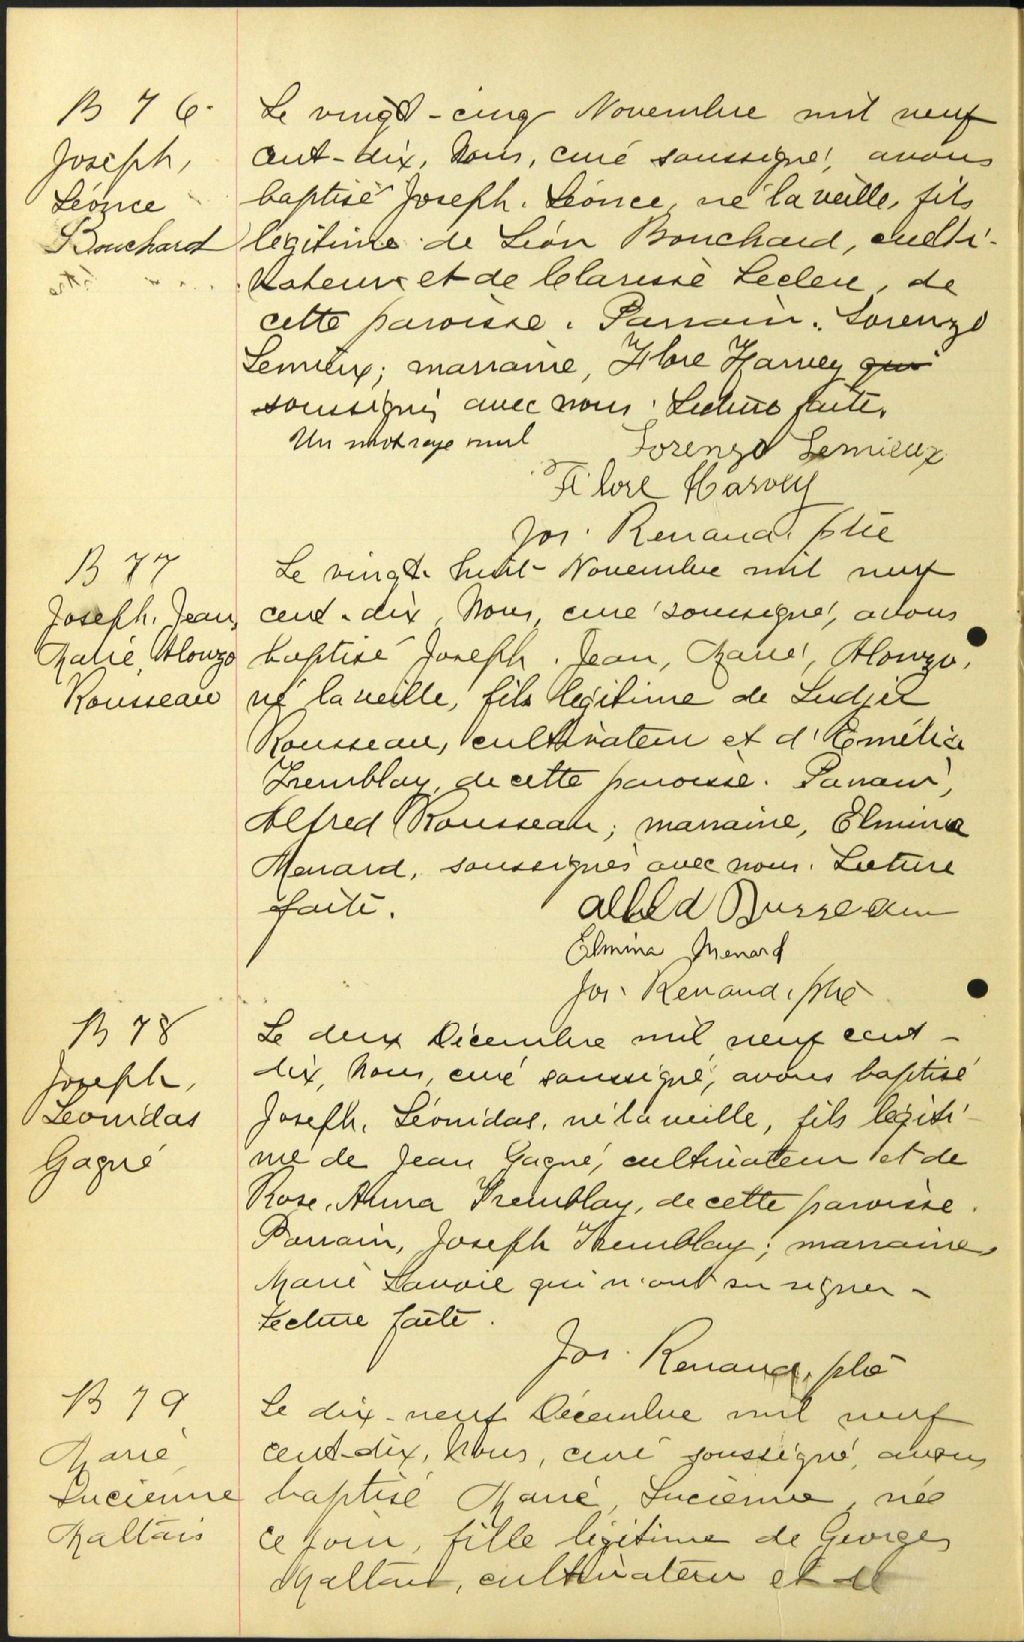 B 76
Joseph,
Léonce
Bouchard
Le vingt-cinq Novembre mil neuf
cent-dix, Nous, curé soussigné, avons
baptisé Joseph. Léonce, né la veille, fils
légitime de Léon Bouchard, culti-
vateur et de Clarisse Leclerc, de
cette paroisse. Parrain. Lorenzo
Lemieux; marraine, Flore Harvey qui
soussignés avec nous. Lecture faite.
Un mot rayé nul
Lorenzo Lemieux
Flore Harvey
Jos. Renaud, ptre
B 77
Joseph. Jean,
Marie, Alonzo
Rousseau
Le vingt-huit Novembre mil neuf
cent-dix, Nous, curé soussigné, avons
baptisé Joseph. Jean, Marie, Alonzo,
né la veille, fils légitime de
Rousseau, cultivateur et d'Emélie
Tremblay, de cette paroisse. Parrain,
Alfred Rousseau; marraine, Elmina
Menard, soussignés avec nous. Lecture
faite.
Elmina Menard
Jos. Renaud, ptre
B 78
Joseph,
Léonidas
Gagné
Le deux Décembre mil neuf cent-
dix, Nous, curé soussigné, avons baptisé
Joseph, Léonidas, né la veille, fils légiti-
me de Jean Gagné, cultivateur et de
Rose. Anna Tremblay, de cette paroisse.
Parrain, Joseph Tremblay; marraine,
Marie Lavoie qui n'ont su signer-
Lecture faite.
Jos. Renaud, ptre
B 79
Marie,
Lucienne
Maltais
Le dix-neuf Décembre mil neuf
cent-dix, Nous, curé soussigné, avons
baptisé Marie, Lucienne, née
ce jour, fille légitime de Georges
Maltais, cultivateur et de